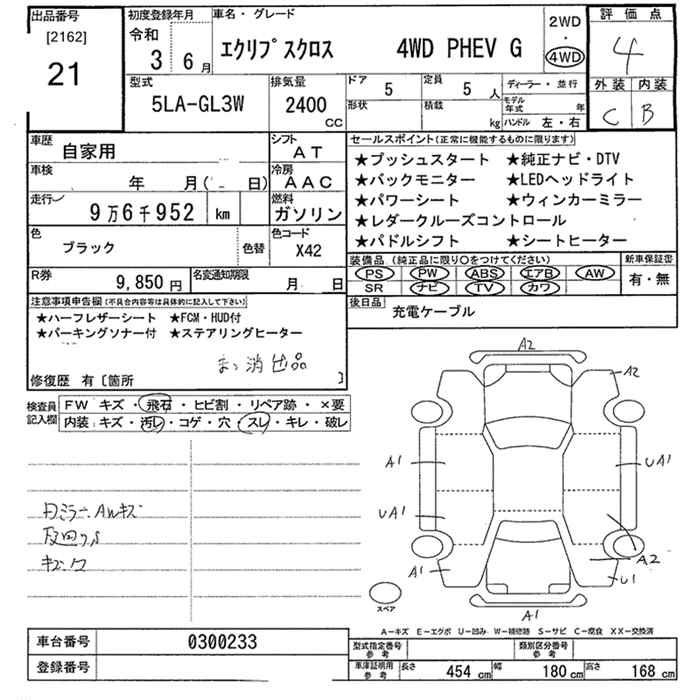 出品番号
[2162]
21
初度登録年月
令和
3 6 月
車名・グレード
エクリプスクロス 4WD PHEV G
2WD
・
4WD
評価点
4
外装 内装
C B
型式
5LA-GL3W
排気量
2400
CC
ドア
5
定員
5 人
形状
積載
kg
ディーラー・並行
モデル年式 年
ハンドル 左・右
車歴
自家用
シフト
AT
車検
年 月( 日)
冷房
AAC
走行
9万6千952 km
燃料
ガソリン
色
ブラック
色替
色コード
X42
R券
9,850 円
名変通知期限
月 日
セールスポイント(正常に機能するものに限ります)
★プッシュスタート ★純正ナビ・DTV
★バックモニター ★LEDヘッドライト
★パワーシート ★ウィンカーミラー
★レダークルーズコントロール
★パドルシフト ★シートヒーター
装備品 (純正品に限り○をつけてください)
PS PW ABS エアB AW
SR ナビ TV カワ
新車保証書
有・無
後日品
充電ケーブル
注意事項申告欄(不具合内容等は具体的に記入して下さい)
★ハーフレザーシート ★FCM・HUD付
★パーキングソナー付 ★ステアリングヒーター
消出品
修復歴 有〔箇所 〕
検査員記入欄
FW キズ・飛石・ヒビ割・リペア跡・×要
内装:キズ・汚レ・コゲ・穴・スレ・キレ・破レ
ミラー、AWキズ
キズ・ワ
A2
A2
A1
UA1
UA1
A2
A1
U1
A1
スペア
A−キズ E−エクボ U−凹み W−補修跡 S−サビ C−腐食 XX−交換済
車台番号
0300233
登録番号
型式指定番号
参考
類別区分番号
参考
車庫証明用
参考
長さ 454 cm 幅 180 cm 高さ 168 cm